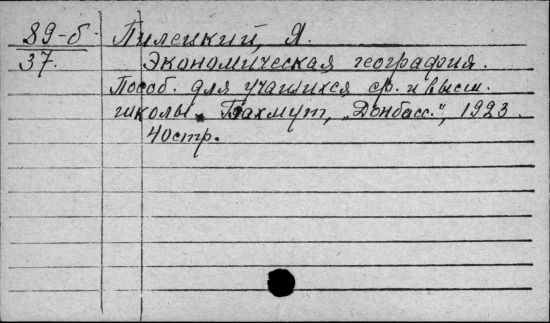 89-б Пилецкий, Я.
37. Экономическая география.
Пособ. для учащихся ср. и высш.
школы. Бахмут, „Донбасс.", 1923.
40стр.